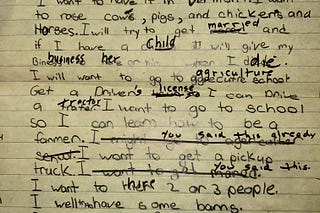 I want to have it in Vermont. I want
to rose cows, pigs, and chickens and
Horses. I will try to get married and
if I have a Child it will give my
business here or him when I die.
I will want to go to agriculture school
Get a Driver's license so I can Drive
a tractor I want to go to school
so I can learn how to be a
farmer. I might go to You said this already
school. I want to get a pickup
truck. I want to get You said this.
I want to 2 or 3 people.
I well have some barns.